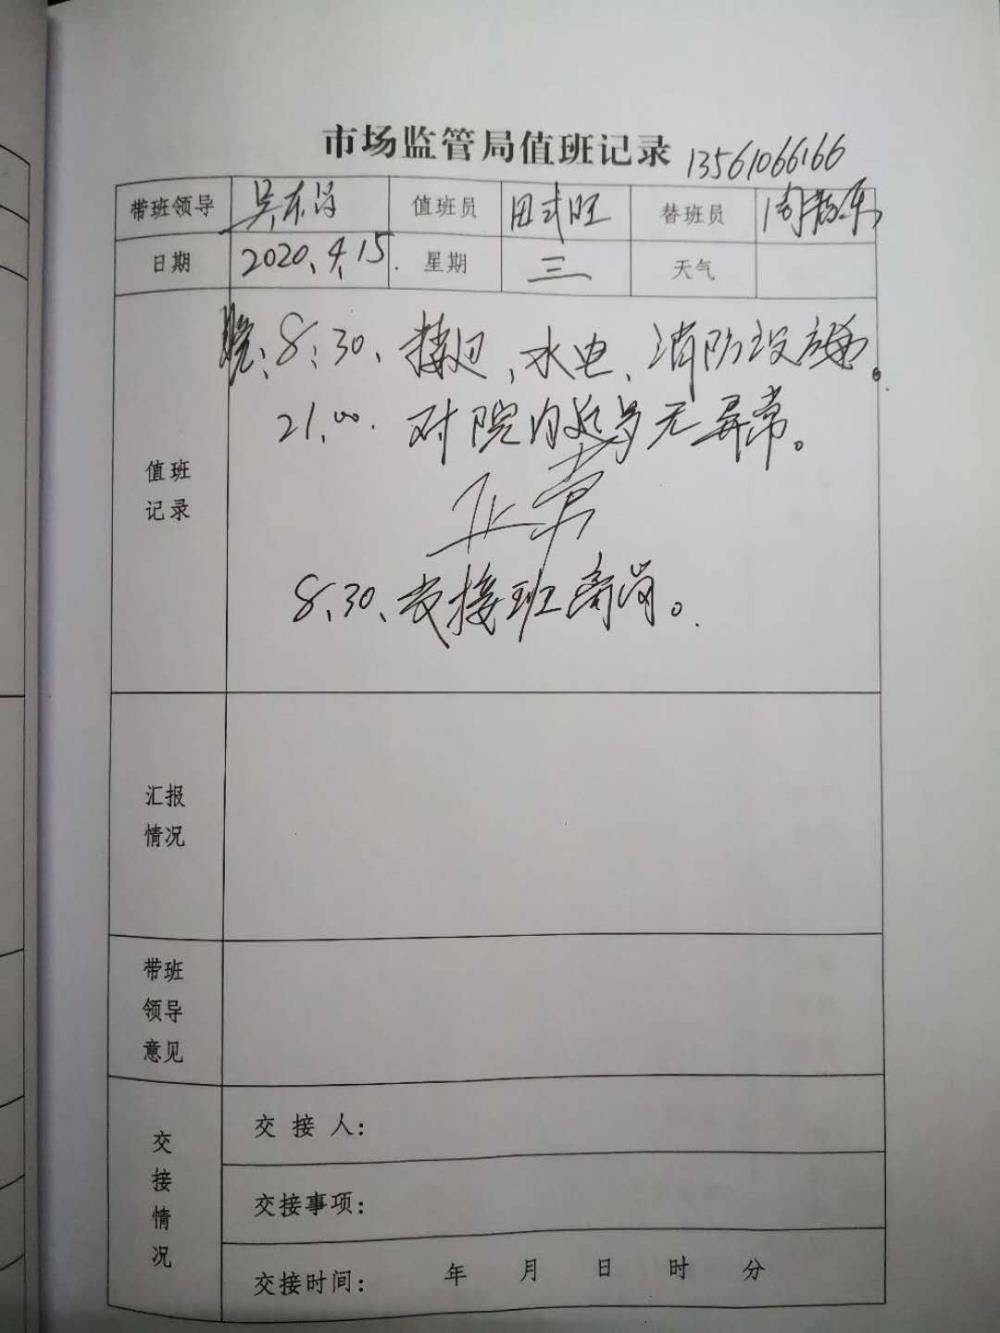 市场监管局值班记录 13561066166
带班领导 吴东 值班员 田式旺 替班员 周
日期 2020.4.15. 星期 三 天气
晚、8:30、接班、水电、消防设施。
21.00. 对院内巡多无异常。
值班
记录
正常
8、30、交接班离岗。
汇报
情况
带班
领导
意见
交
接
情
况
交 接 人：
交接事项：
交接时间： 年 月 日 时 分